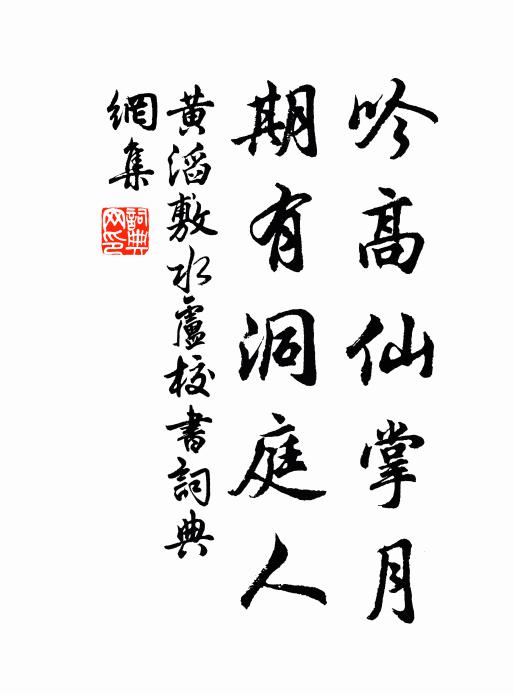 吟高仙掌月
期有洞庭人
黃滔敷水盧校書詞典
網集
詞典網印